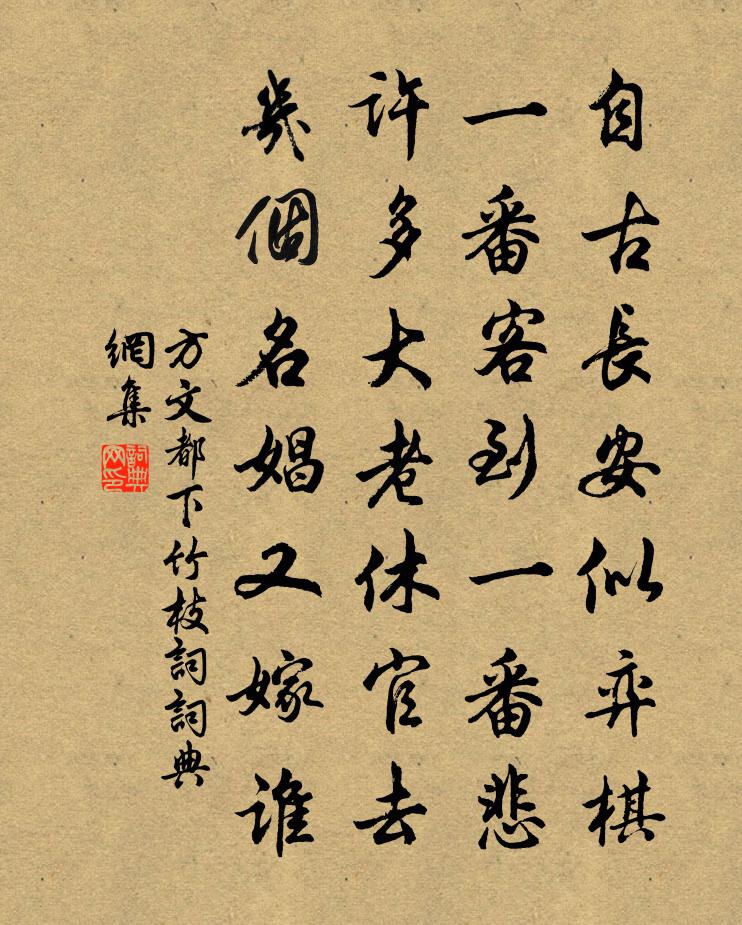 自古長安似弈棋
一番客到一番悲
許多大老休官去
幾個名娼又嫁誰
方文都下竹枝詞詞典
網集
詞典
网印